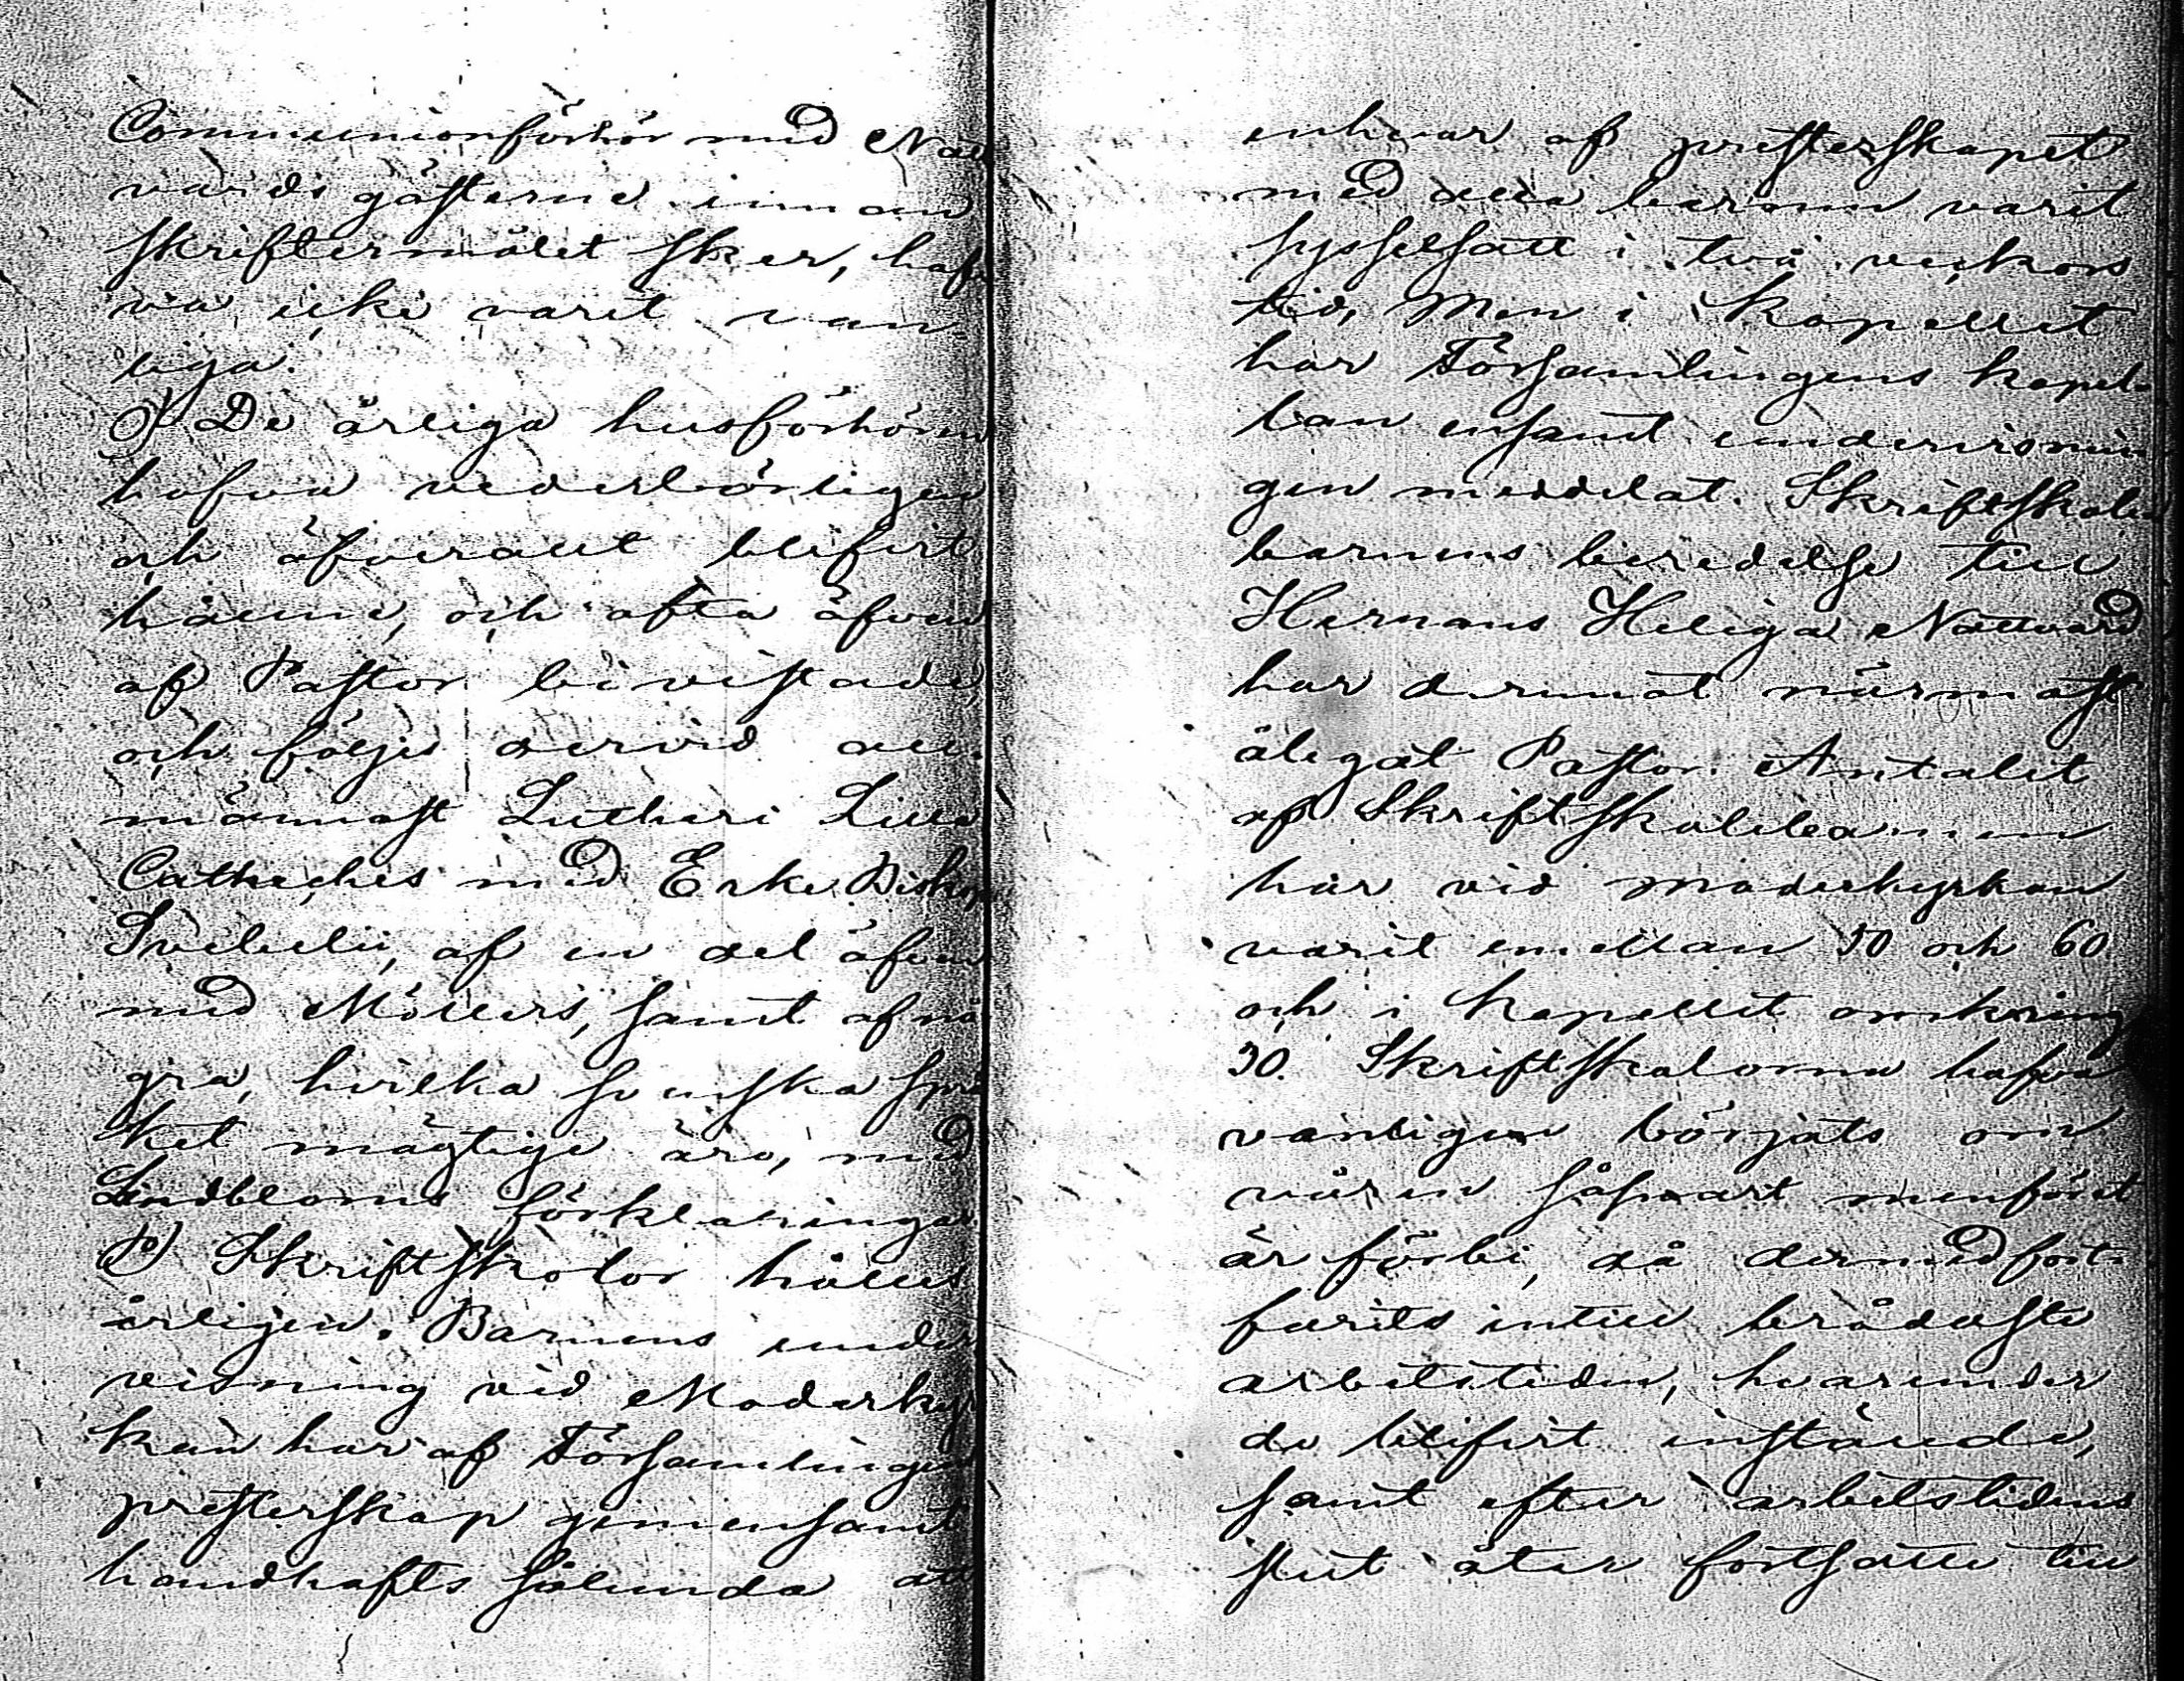 Communionförhör med Natt
vards gästerne innan
skriftermålet sker, haf
va icke varit van
liga.
O) De årliga husförhören
hafva vederbörligen
och öfverallt blifvit
hållne, och ofta äfven
af Pastor bivistade,
och följes dervid all
männast Lutheri Lilla
Catheches med Erke Biskop
Svebelii, af en del äfven
med Möllers, samt af nå
gra, hvilka svenska språ
ket mägtige äro, med
Lindbloms förklaringar.
P) Skriftskolor hålles
årligen. Barnens under
visning vid Moderkyr
kan har af Församlingens
presterskap gemensamt
handhafts sålunda att
enhvar af presterskapet
med alla barnen varit
sysselsatt i två veckors
tid, Men i Kapellet
har Församlingens kapel
lan ensamt undervisnin
gen meddelat. Skriftskole
barnens beredelse till
Herrans Heliga Nattvard
har deremot närmast
ålegat Pastor. Antalet
af Skriftskolebarnen
har vid moderkyrkan
varit emellan 50 och 60
och i Kapellet omkring
30. Skriftskolorna hafva
vanligen börjats om
våren såsnart menföret
är förbi, då dermed fort
farits intill brådaste
arbetstiden, hvarunder
de blifvit inställde,
samt efter arbetstidens
slut åter fortsatte till